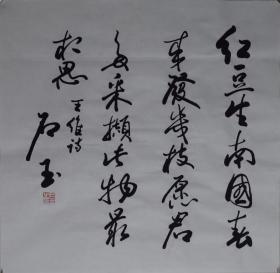 红豆生南國春
来發幾枝愿君
多采擷此物最
相思 王維诗
石玉